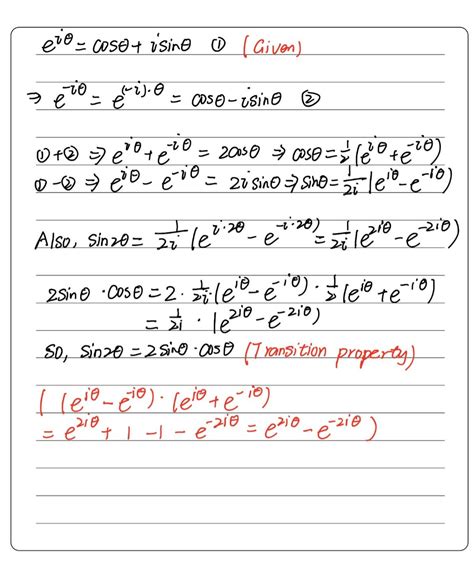 e^{iθ} = cosθ + i sinθ ① (Given)
⇒ e^{-iθ} = e^{(-i)·θ} = cosθ - i sinθ ②
① + ② ⇒ e^{iθ} + e^{-iθ} = 2cosθ ⇒ cosθ = 1/2 (e^{iθ} + e^{-iθ})
① - ② ⇒ e^{iθ} - e^{-iθ} = 2i sinθ ⇒ sinθ = 1/2i (e^{iθ} - e^{-iθ})
Also, sin2θ = 1/2i (e^{i·2θ} - e^{-i·2θ}) = 1/2i (e^{2iθ} - e^{-2iθ})
2sinθ · cosθ = 2 · 1/2i (e^{iθ} - e^{-iθ}) · 1/2 (e^{iθ} + e^{-iθ})
= 1/2i · (e^{2iθ} - e^{-2iθ})
So, sin2θ = 2sinθ · cosθ (Transition property)
( (e^{iθ} - e^{-iθ}) · (e^{iθ} + e^{-iθ})
= e^{2iθ} + 1 - 1 - e^{-2iθ} = e^{2iθ} - e^{-2iθ} )